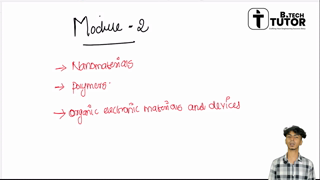 Module - 2
B.TECH
TUTOR
→ Nanomaterials
→ polymers
→ organic electronic materials and devices